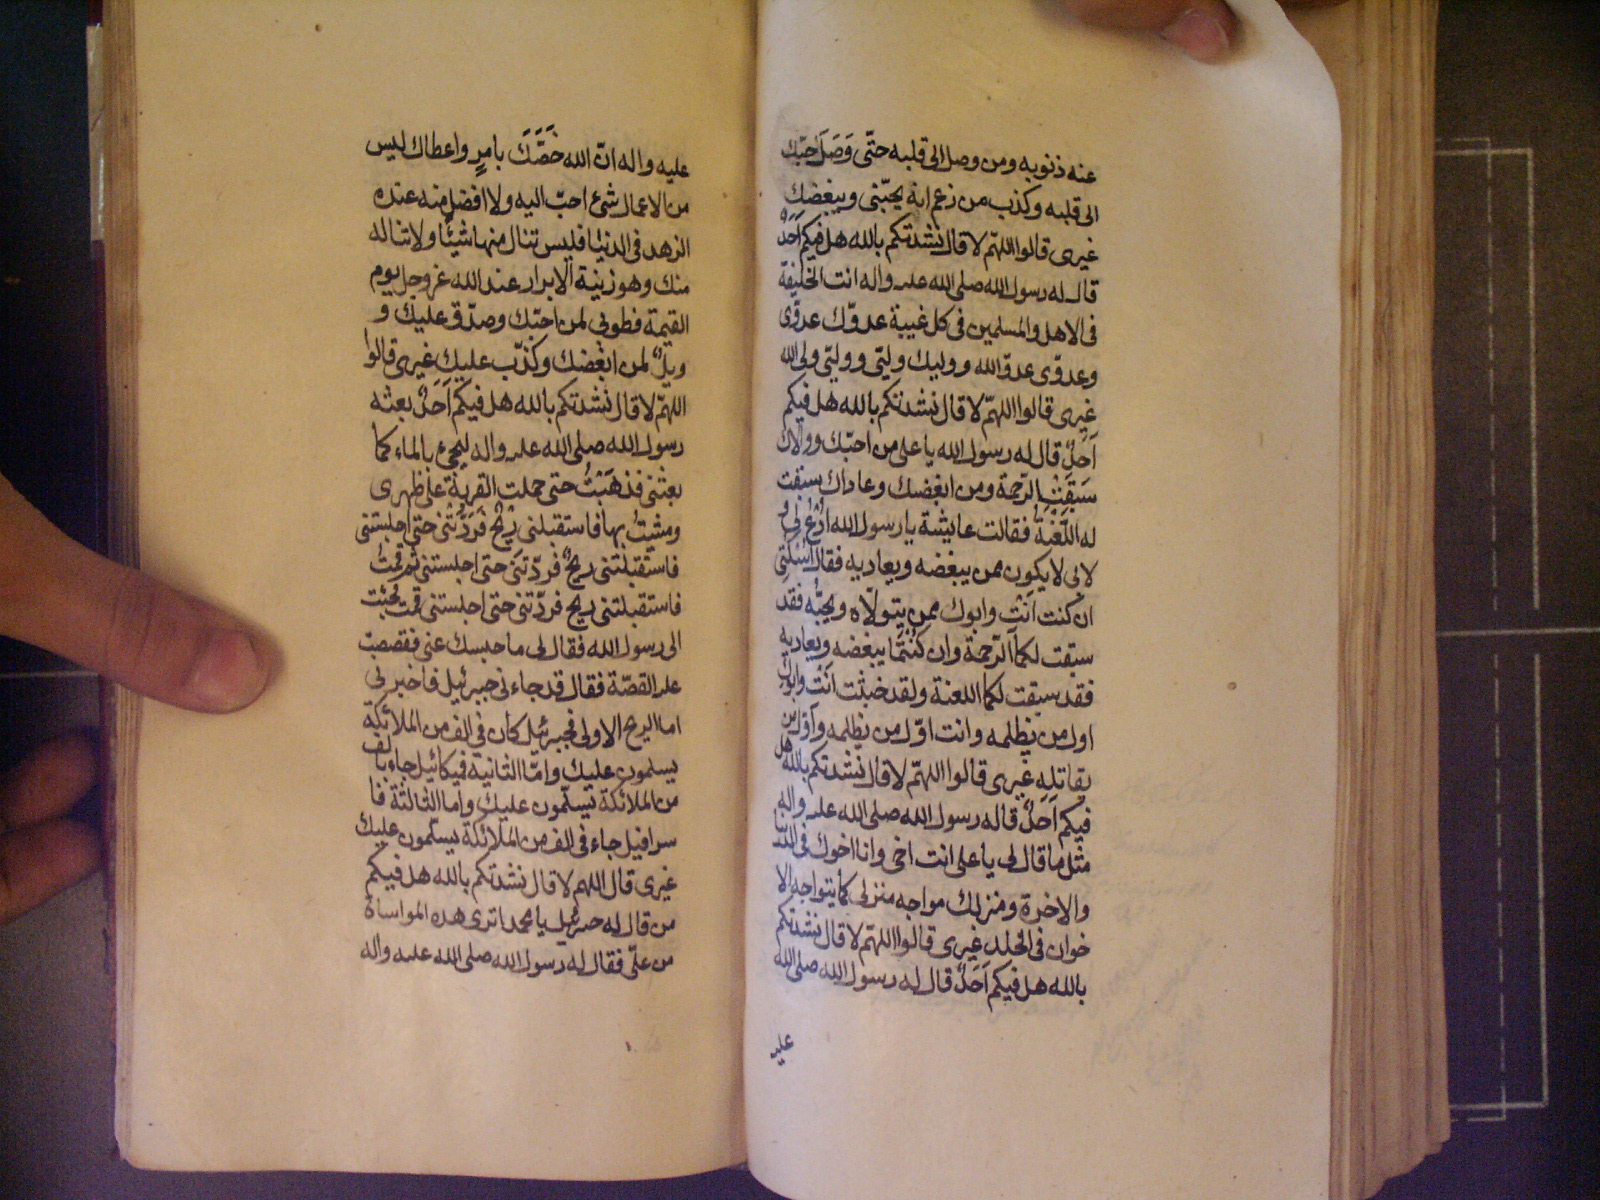 عنه ذنوبه ومن وصل الى قلبه حتّى وَصَلَ حبّك
الى قلبه وكذب من زعم انه يحبّنى ويبغضك
غيرى قالوا اللهمّ لا قال نشدتكم بالله هل فيكم اَحَدٌ
قال له رسول الله صلى الله عليه واله انت الخليفة
فى الاهل والمسلمين فى كل غيبة عدوّك عدوّى
وعدوّى عدوّ الله ووليك وليّى ووليّى ولى الله
غيرى قالوا اللهمّ لا قال نشدتكم بالله هل فيكم
اَحَدٌ قال له رسول الله يا على من احبّك ووالاك
سَبَقَتْ الرّحمة ومن ابغضك وعاداك سبقت
له اللّعْنَةُ فقالت عايشة يا رسول الله ادْعُ لى و
لابى لا يكون ممن يبغضه ويعاديه فقال اسْكُتِى
ان كنت اَنْتِ وابوك ممن يتولاّه ويحبُّه فقد
سبقت لكما الرّحمة وان كُنْتُما يبغضه ويعاديه
فقد سبقت لكما اللعنة ولقد خبثت اَنْت وابوك
اول من يظلمه وانت اوّل من يظلمه واَوّل من
يقاتله غيرى قالوا اللهمّ لا قال نشدتكم بالله هل
فيكم اَحَدٌ قاله رسول الله صلى الله عليه واله
مثل ما قال لى يا على انت اخى وانا اخوك فى الدنيا
والاخرة ومنزلك مواجه منزلى كما يتواجه الا
خوان فى الخلد غيرى قالوا اللهمّ لا قال نشدتكم
بالله هل فيكم اَحَدٌ قال له رسول الله صلى الله
عليه
عليه واله انّ الله خَصَّكَ بامرٍ واعطاك ليس
من الاعمال شئ احبّ اليه ولا افضل منه عنده
الزهد فى الدنيا فليس تنال منها شيئًا ولا تناله
منك وهو زينة الابرار عند الله عزوجل يوم
القيمة فطوبى لمن احبّك وصدّق عليك و
ويلٌ لمن ابغضك وكذّب عليك غيرى قالوا
اللهمّ لا قال نشدتكم بالله هل فيكم اَحَدٌ بعثه
رسول الله صلى الله عليه واله ليجئ بالماء كما
بعثنى فذهَبْتُ حتى حملت القربة على ظهرى
ومشيتُ بها فاستقبلنى رِيْحٌ فَرَدَّتْنى حتى اجلستنى
فاستقبلتنى ريحٌ فردّتنى حتى اجلستنى ثم قمتُ
فاستقبلتنى ريح فردّتنى حتى اجلستنى قمت فجئت
الى رسول الله فقال لى ما حبسك عنى فقصصت
عليه القصّة فقال قد جاءنى جبرئيل فاخبرنى
اما الريح الاولى فجبرئيل كان فى الف من الملائكة
يسلمون عليك وامّا الثانية فميكائيل جاء بالف
من الملائكة يسلّمون عليك واما الثالثة فا
سرافيل جاء فى الف من الملائكة يسلّمون عليك
غيرى قال اللهم لا قال نشدتكم بالله هل فيكم
من قال له جبرئيل يا محمد اترى هذه المواساة
من علىّ فقال له رسول الله صلى الله عليه واله